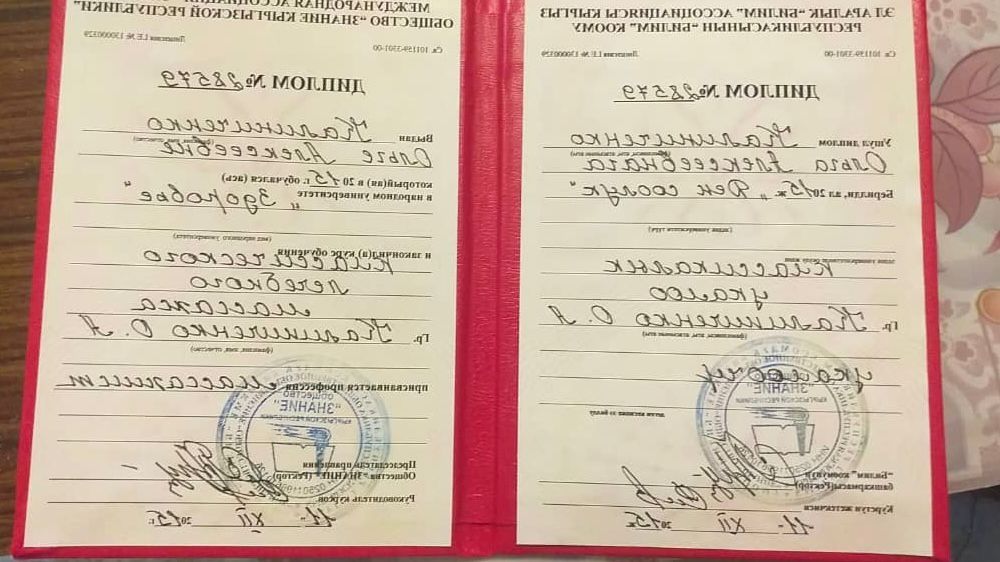 ЭЛ АРАЛЫК “БИЛИМ” АССОЦИАЦИЯСЫ КЫРГЫЗ
РЕСПУБЛИКАСЫНЫН “БИЛИМ” КООМУ
Св. 101159-3301-00 Лицензия LE № 130000329
ДИПЛОМ № 28579
Ушул диплом Калиниченко
(фамилиясы, аты, атасынын аты)
Ольга Алексеевнага
Берилди, ал 2015 ж. „Ден соолук“
(элдик университет туру)
Классикалык
укалоо
Гр. Калиниченко О. А
(фамилиясы, аты, атасынын аты)
укалоочу
“Билим” коомунун
башкармасы(Ректор)
Курстун жетекчиси
11- XII 2015ж
МЕЖДУНАРОДНАЯ АССОЦИАЦИЯ “ЗНАНИЕ”
ОБЩЕСТВО “ЗНАНИЕ КЫРГЫЗСКОЙ РЕСПУБЛИКИ”
Св. 101159-3301-00 Лицензия LE № 130000329
ДИПЛОМ № 28579
Выдан Калиниченко
(фамилия, имя, отчество)
Ольге Алексеевне
который(ая) в 2015 г. обучался (ась)
в народном университете „Здоровье“
(вид народного университета)
и закончил(а) курс обучения
классического
лечебного
массажа
Гр. Калиниченко О. А
(фамилия, имя, отчество)
присваивается профессия массажист
ОБЩЕСТВО
“ЗНАНИЕ”
КЫРГЫЗСКОЙ РЕСПУБЛИКИ
Председатель правления
Общества “ЗНАНИЕ” (Ректор)
Руководитель курсов
11- XII 2015 г.